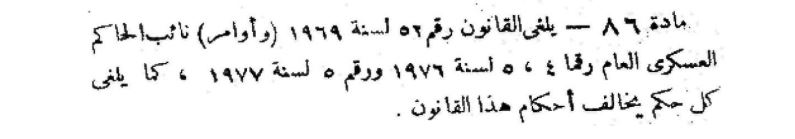 مادة ٨٦ — يلغى القانون رقم ٥٢ لسنة ١٩٦٩ (وأوامر) نائب الحاكم
العسكرى العام رقما ٤ ، ٥ لسنة ١٩٧٦ ورقم ٥ لسنة ١٩٧٧ ، كما يلغى
كل حكم يخالف أحكام هذا القانون .